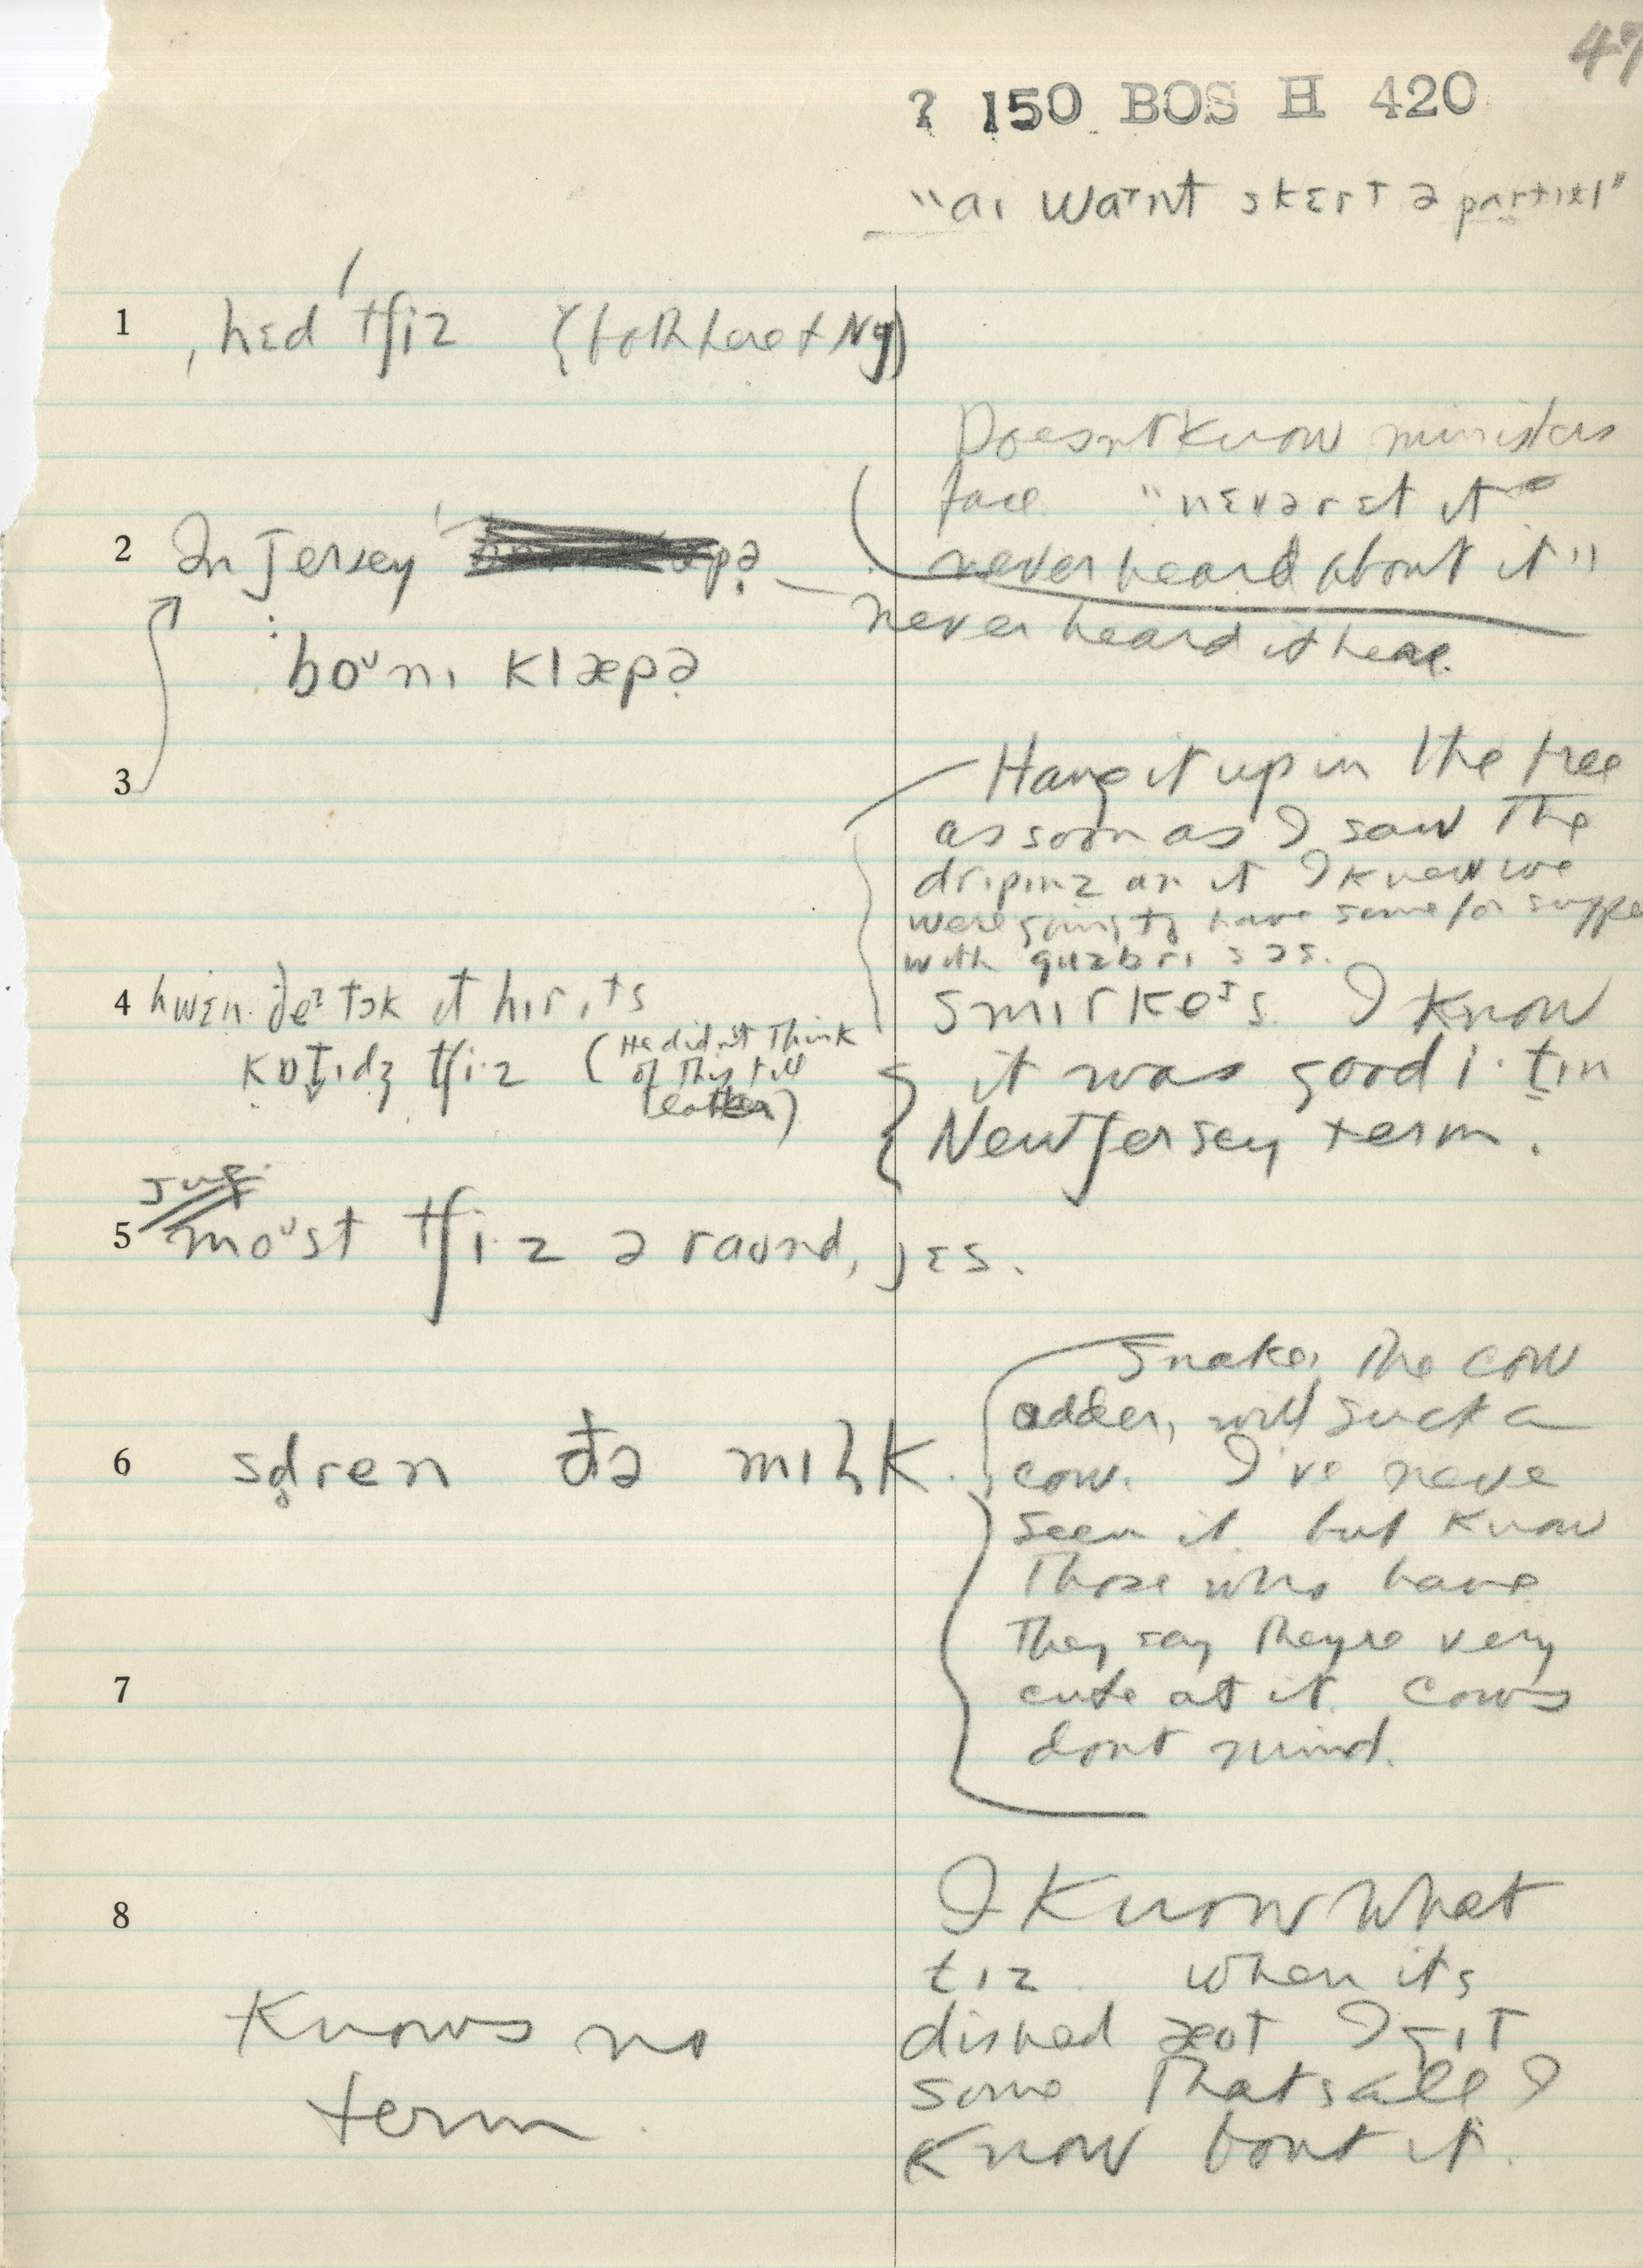 47
? 150 BOS H 420
"aɪ waɪnt skɛrt ə partɪkl"
1 ˌhɛd ˈtʃiz (both here & NJ)
Doesn't know ministers
face "nɛvər ɛt it
never heard about it"
2 In Jersey pə
never heard it here.
boᵘnɪ klæpə
3 Hang it up in the tree
as soon as I saw the
drɪpɪnz an it I knew we
were going to have some for suppe
with
smɪrkeˑs. I know
4 hwɛn ðeᶦ tɔk it hir, its
kɒtɪdʒ tʃi·z (He didn't think
of this till
later)
it was good i·tɪn
New Jersey term.
5 moᵘst tʃi·z ə raʊnd, jɛs.
Snake, the cow
adder, will suck a
6 sdren ðə mɪlk.
cow. I've neve
seen it but know
Those who have
They say they're very
7 cute at it. Cows
dont mind.
8 I know what
tɪz when its
Knows no
dished æot I gɪt
term.
some Thats all I
know bout it.